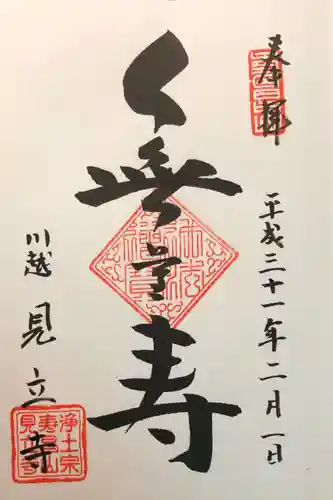 奉拝
平成三十一年二月一日
無量寿
川越
見立寺
浄土宗
見立寺